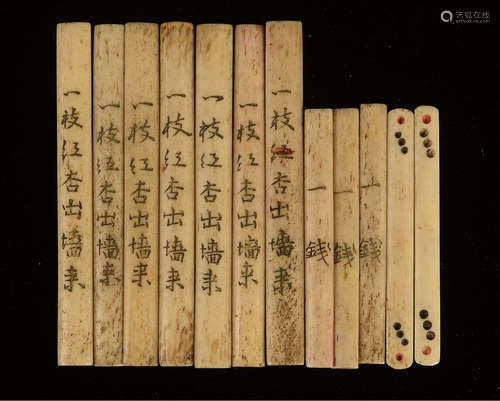 一枝红杏出墙来
一枝红杏出墙来
一枝红杏出墙来
一枝红杏出墙来
一枝红杏出墙来
一枝红杏出墙来
一枝红杏出墙来
一錢
一錢
一錢
艺狐在线